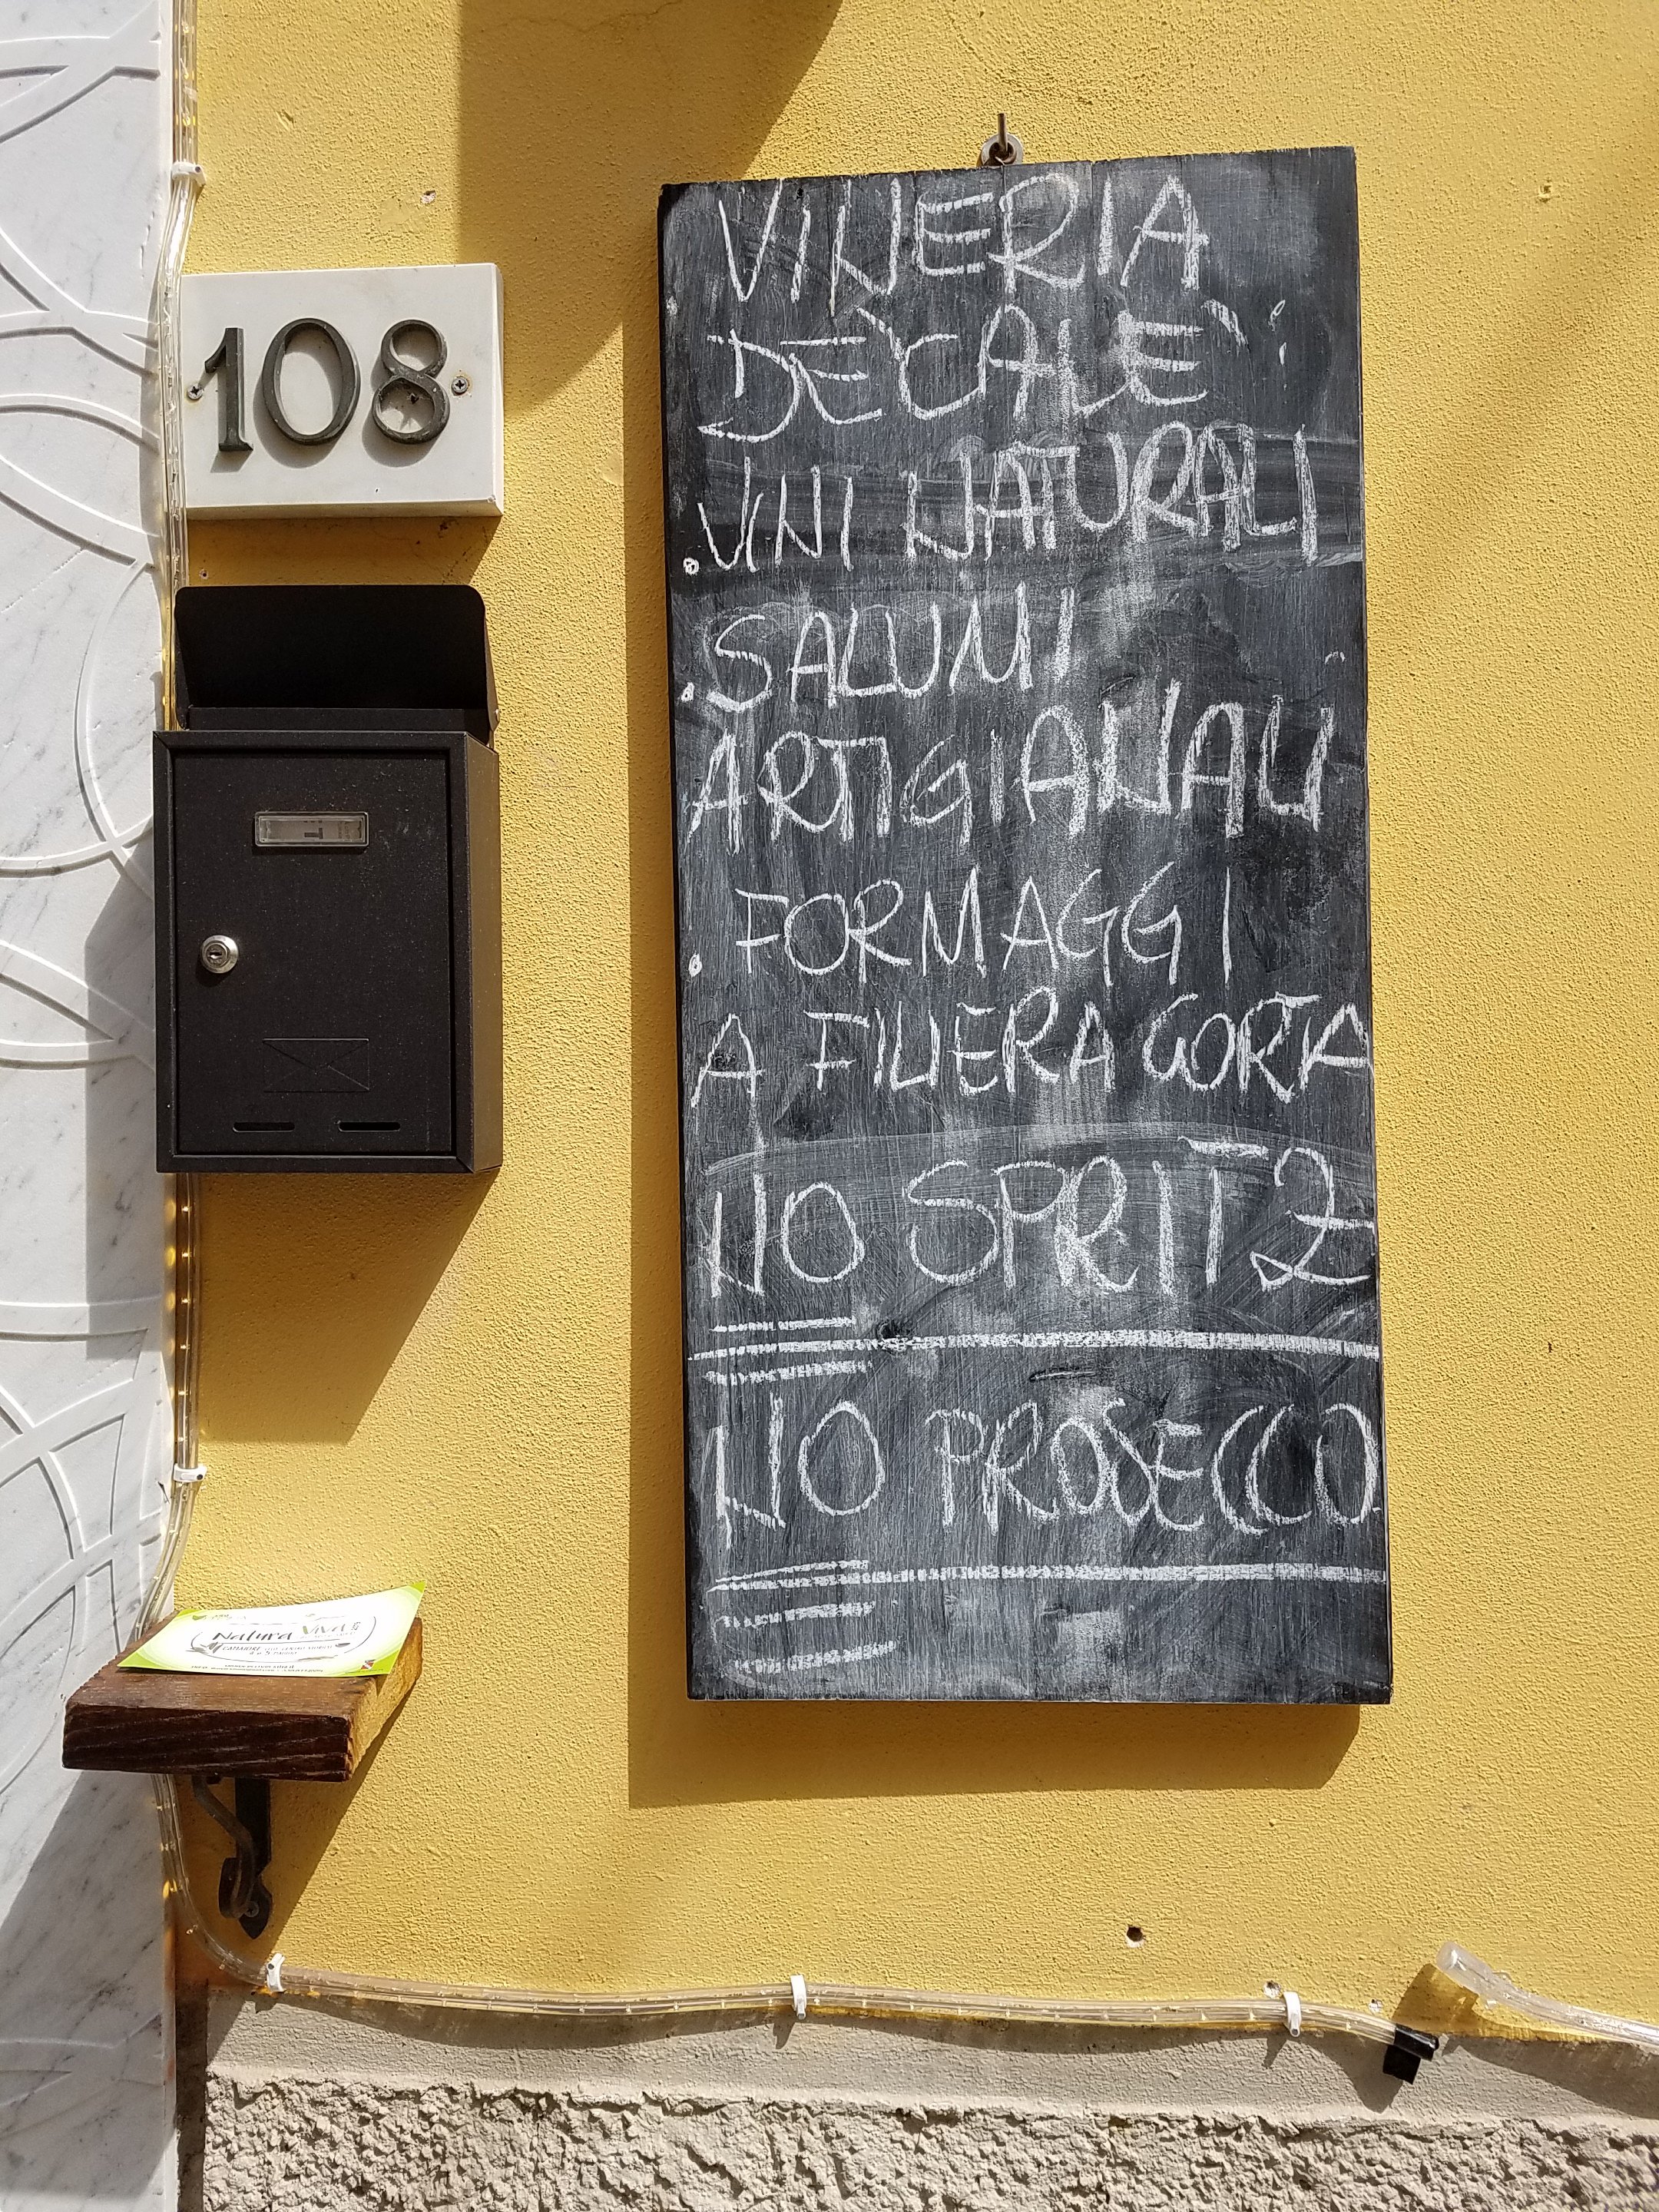 108
VINERIA
DE'CALE':
.VINI NATURALI
.SALUMI
ARTIGIANALI
.FORMAGGI
A FILIERA CORTA
NO SPRITZ
NO PROSECCO
Natura Viva